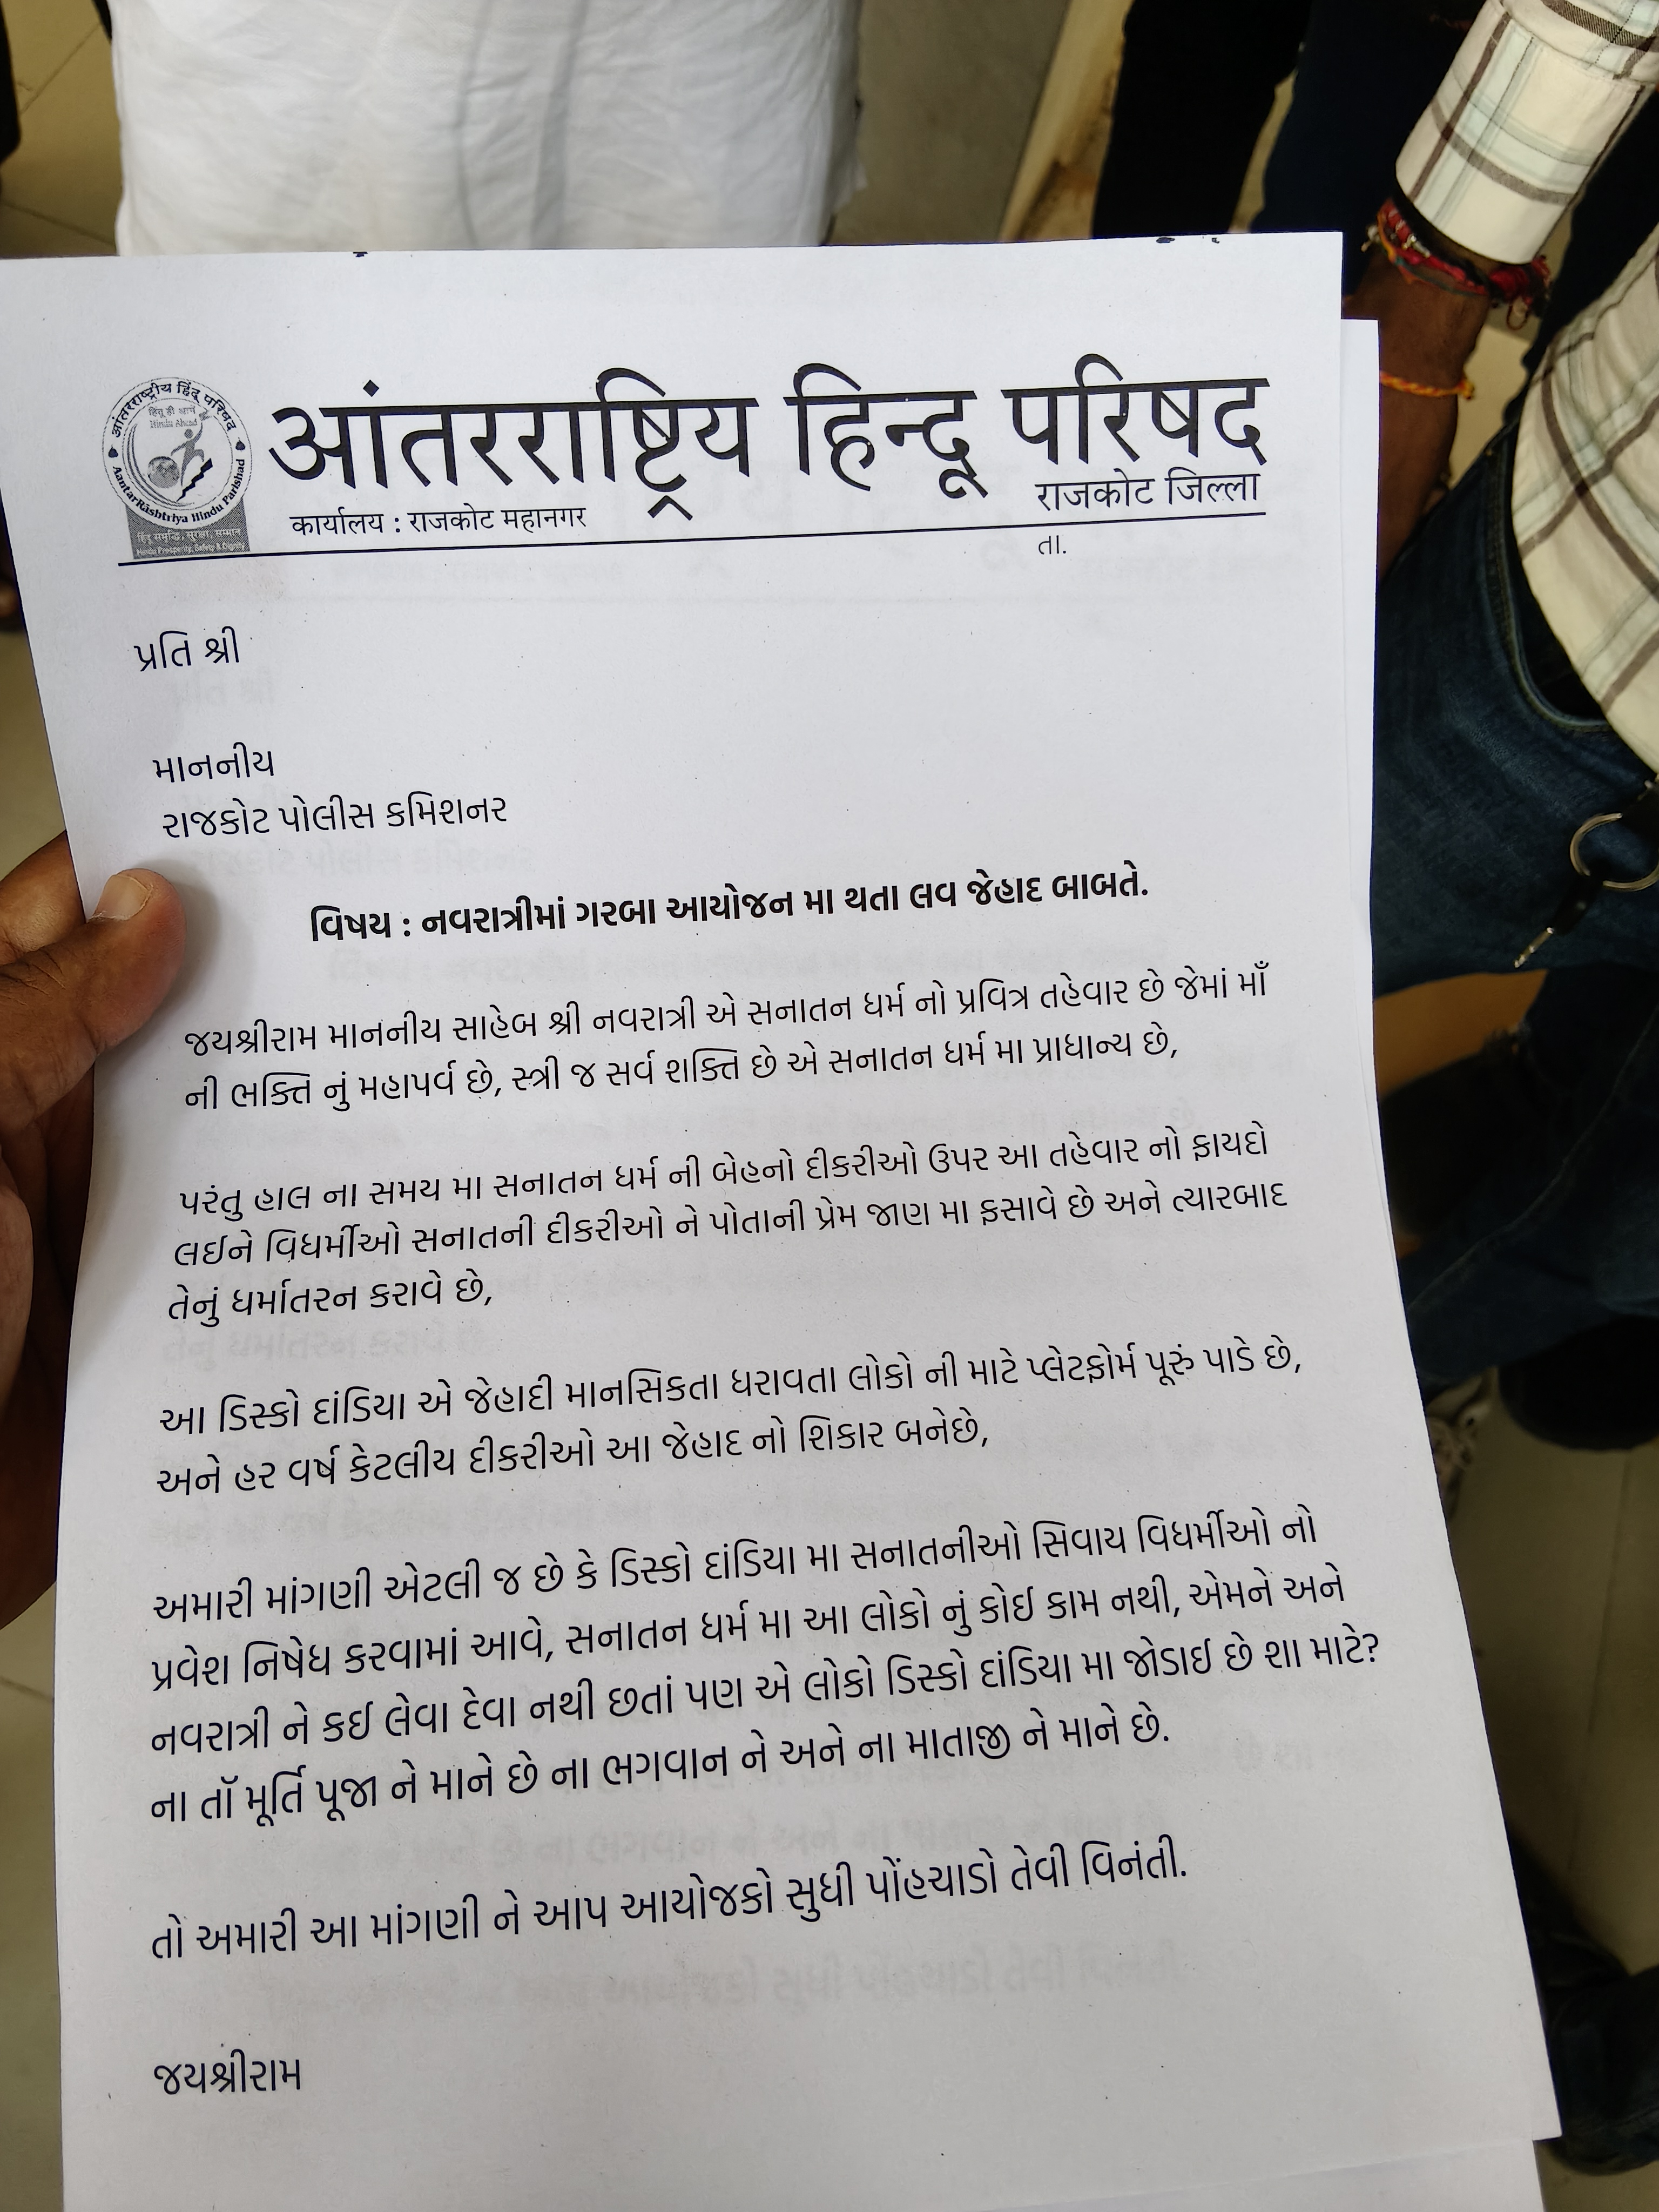 आंतरराष्ट्रीय हिंदू परिषद
हिन्दू ही आगे
Hindu Ahead
AantarRashtriya Hindu Parishad
हिंदू समृद्धि, सुरक्षा, सम्मान
Hindu Prosperity, Safety & Dignity
आंतरराष्ट्रिय हिन्दू परिषद
राजकोट जिल्ला
कार्यालय : राजकोट महानगर
તા.
પ્રતિ શ્રી
માનનીય
રાજકોટ પોલીસ કમિશનર
વિષય : નવરાત્રીમાં ગરબા આયોજન મા થતા લવ જેહાદ બાબતે.
જયશ્રીરામ માનનીય સાહેબ શ્રી નવરાત્રી એ સનાતન ધર્મ નો પ્રવિત્ર તહેવાર છે જેમાં માઁ
ની ભક્તિ નું મહાપર્વ છે, સ્ત્રી જ સર્વ શક્તિ છે એ સનાતન ધર્મ મા પ્રાધાન્ય છે,
પરંતુ હાલ ના સમય મા સનાતન ધર્મ ની બેહનો દીકરીઓ ઉપર આ તહેવાર નો ફાયદો
લઈને વિધર્મીઓ સનાતની દીકરીઓ ને પોતાની પ્રેમ જાણ મા ફસાવે છે અને ત્યારબાદ
તેનું ધર્માતરન કરાવે છે,
આ ડિસ્કો દાંડિયા એ જેહાદી માનસિકતા ધરાવતા લોકો ની માટે પ્લેટફોર્મ પૂરું પાડે છે,
અને હર વર્ષ કેટલીય દીકરીઓ આ જેહાદ નો શિકાર બનેછે,
અમારી માંગણી એટલી જ છે કે ડિસ્કો દાંડિયા મા સનાતનીઓ સિવાય વિધર્મીઓ નો
પ્રવેશ નિષેધ કરવામાં આવે, સનાતન ધર્મ મા આ લોકો નું કોઈ કામ નથી, એમને અને
નવરાત્રી ને કઈ લેવા દેવા નથી છતાં પણ એ લોકો ડિસ્કો દાંડિયા મા જોડાઈ છે શા માટે?
ના તૉ મૂર્તિ પૂજા ને માને છે ના ભગવાન ને અને ના માતાજી ને માને છે.
તો અમારી આ માંગણી ને આપ આયોજકો સુધી પોંહચાડો તેવી વિનંતી.
જયશ્રીરામ